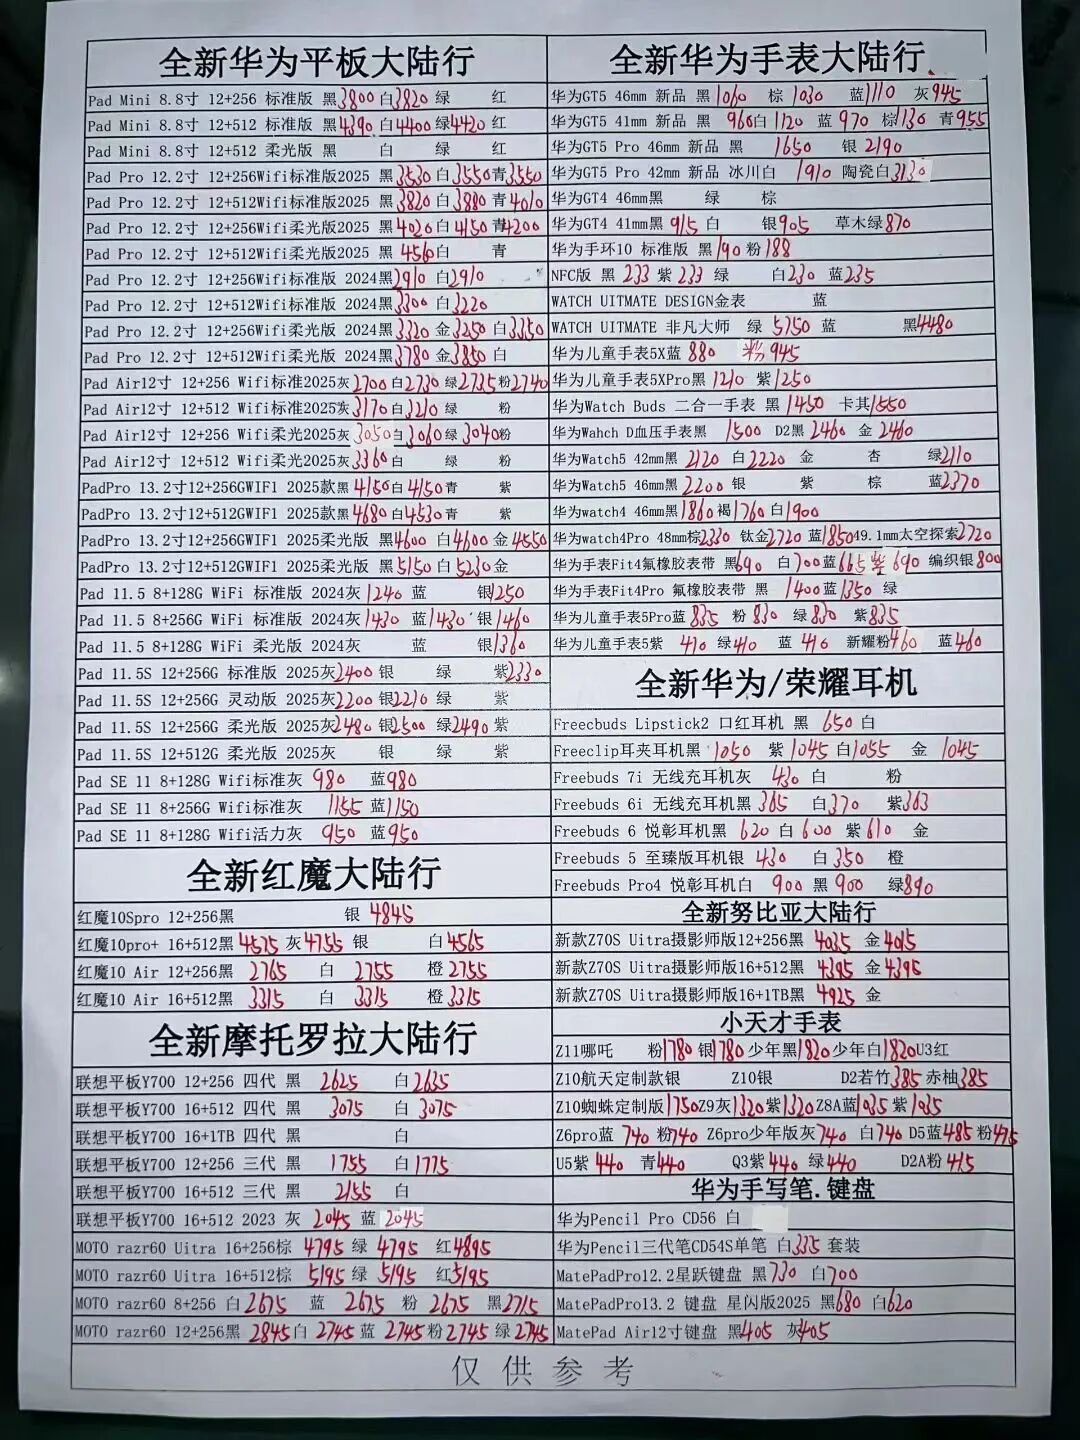 全新华为平板大陆行
Pad Mini 8.8寸 12+256 标准版 黑3800 白3820 绿 红
Pad Mini 8.8寸 12+512 标准版 黑4390 白4400 绿4420 红
Pad Mini 8.8寸 12+512 柔光版 黑 白 绿 红
Pad Pro 12.2寸 12+256Wifi标准版2025 黑3530 白3550 青3550
Pad Pro 12.2寸 12+512Wifi标准版2025 黑3820 白3880 青4010
Pad Pro 12.2寸 12+256Wifi柔光版2025 黑4020 白4150 青4200
Pad Pro 12.2寸 12+512Wifi柔光版2025 黑4560 白 青
Pad Pro 12.2寸 12+256Wifi标准版 2024黑2910 白2910
Pad Pro 12.2寸 12+512Wifi标准版 2024黑3300 白3220
Pad Pro 12.2寸 12+256Wifi柔光版 2024黑3320 金3250 白3350
Pad Pro 12.2寸 12+512Wifi柔光版 2024黑3780 金3850 白
Pad Air12寸 12+256 Wifi标准2025灰2700 白2730 绿2735 粉2740
Pad Air12寸 12+512 Wifi标准2025灰3170 白3210 绿 粉
Pad Air12寸 12+256 Wifi柔光2025灰3050 白3060 绿3040 粉
Pad Air12寸 12+512 Wifi柔光2025灰3360 白 绿 粉
PadPro 13.2寸12+256GWIFI 2025款黑4150 白4150 青 紫
PadPro 13.2寸12+512GWIFI 2025款黑4680 白4530 青 紫
PadPro 13.2寸12+256GWIFI 2025柔光版 黑4600 白4600 金4550
PadPro 13.2寸12+512GWIFI 2025柔光版 黑5150 白5230 金
Pad 11.5 8+128G WiFi 标准版 2024灰1240 蓝 银1250
Pad 11.5 8+256G WiFi 标准版 2024灰1430 蓝1430 银1460
Pad 11.5 8+128G WiFi 柔光版 2024灰 蓝 银1360
Pad 11.5S 12+256G 标准版 2025灰2400 银 绿 紫2330
Pad 11.5S 12+256G 灵动版 2025灰2200 银2210 绿 紫
Pad 11.5S 12+256G 柔光版 2025灰2480 银2500 绿2490 紫
Pad 11.5S 12+512G 柔光版 2025灰 银 绿 紫
Pad SE 11 8+128G Wifi标准灰 980 蓝980
Pad SE 11 8+256G Wifi标准灰 1155 蓝1150
Pad SE 11 8+128G Wifi活力灰 950 蓝950
全新红魔大陆行
红魔10Spro 12+256黑 银 4845
红魔10pro+ 16+512黑4575 灰4755 银 白4565
红魔10 Air 12+256黑 2765 白 2755 橙2755
红魔10 Air 16+512黑 3315 白 3315 橙3315
全新摩托罗拉大陆行
联想平板Y700 12+256 四代 黑 2625 白2635
联想平板Y700 16+512 四代 黑 3075 白 3075
联想平板Y700 16+1TB 四代 黑 白
联想平板Y700 12+256 三代 黑 1755 白1775
联想平板Y700 16+512 三代 黑 2155 白
联想平板Y700 16+512 2023 灰 2045 蓝 2045
MOTO razr60 Uitra 16+256棕 4795 绿 4795 红4895
MOTO razr60 Uitra 16+512棕 5195 绿 5195 红5195
MOTO razr60 8+256 白2675 蓝 2675 粉 2675 黑2715
MOTO razr60 12+256黑 2845 白 2745 蓝 2745 粉2745 绿2745
全新华为手表大陆行
华为GT5 46mm 新品 黑1060 棕1030 蓝1110 灰945
华为GT5 41mm 新品 黑 960 白1120 蓝970 棕1130 青955
华为GT5 Pro 46mm 新品 黑 1650 银2190
华为GT5 Pro 42mm 新品 冰川白 1910 陶瓷白3130
华为GT4 46mm黑 绿 棕
华为GT4 41mm黑915 白 银905 草木绿870
华为手环10 标准版 黑190 粉188
NFC版 黑 233 紫233 绿 白230 蓝235
WATCH UITMATE DESIGN金表 蓝
WATCH UITMATE 非凡大师 绿 5750 蓝 黑4480
华为儿童手表5X蓝 880 粉945
华为儿童手表5XPro黑 1210 紫1250
华为Watch Buds 二合一手表 黑1450 卡其1550
华为Wahch D血压手表黑 1500 D2黑2460 金2460
华为Watch5 42mm黑 2120 白2220 金 杏 绿2110
华为Watch5 46mm黑2200 银 紫 棕 蓝2370
华为watch4 46mm黑1860 褐1760 白1900
华为watch4Pro 48mm棕2330 钛金2720 蓝1850 49.1mm太空探索2720
华为手表Fit4氟橡胶表带 黑690 白700 蓝665 紫690 编织银800
华为手表Fit4Pro 氟橡胶表带 黑 1400 蓝1350 绿
华为儿童手表5Pro蓝835 粉830 绿830 紫835
华为儿童手表5紫 410 绿410 蓝 410 新耀粉460 蓝460
全新华为/荣耀耳机
Freecbuds Lipstick2 口红耳机 黑 650 白
Freeclip耳夹耳机黑1050 紫1045 白1055 金 1045
Freebuds 7i 无线充耳机灰 430 白 粉
Freebuds 6i 无线充耳机黑365 白370 紫363
Freebuds 6 悦彰耳机黑 620 白600 紫610 金
Freebuds 5 至臻版耳机银 430 白350 橙
Freebuds Pro4 悦彰耳机白 900 黑900 绿890
全新努比亚大陆行
新款Z70S Uitra摄影师版12+256黑 4035 金4015
新款Z70S Uitra摄影师版16+512黑 4395 金4395
新款Z70S Uitra摄影师版16+1TB黑 4925 金
小天才手表
Z11哪吒 粉1780 银1780 少年黑1820 少年白1820 U3红
Z10航天定制款银 Z10银 D2若竹385 赤柚385
Z10蜘蛛定制版1750 Z9灰1320 紫1320 Z8A蓝1035 紫1035
Z6pro蓝 740 粉740 Z6pro少年版灰740 白740 D5蓝485 粉475
U5紫440 青440 Q3紫440 绿440 D2A粉415
华为手写笔.键盘
华为Pencil Pro CD56 白
华为Pencil三代笔CD54S单笔 白335 套装
MatePadPro12.2星跃键盘 黑730 白700
MatePadPro13.2 键盘 星闪版2025 黑680 白620
MatePad Air12寸键盘 黑405 灰405
仅供参考